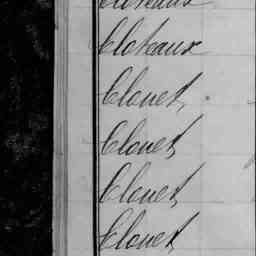 Cloteaux
Clouet,
Clouet,
Clouet,
Clouet,